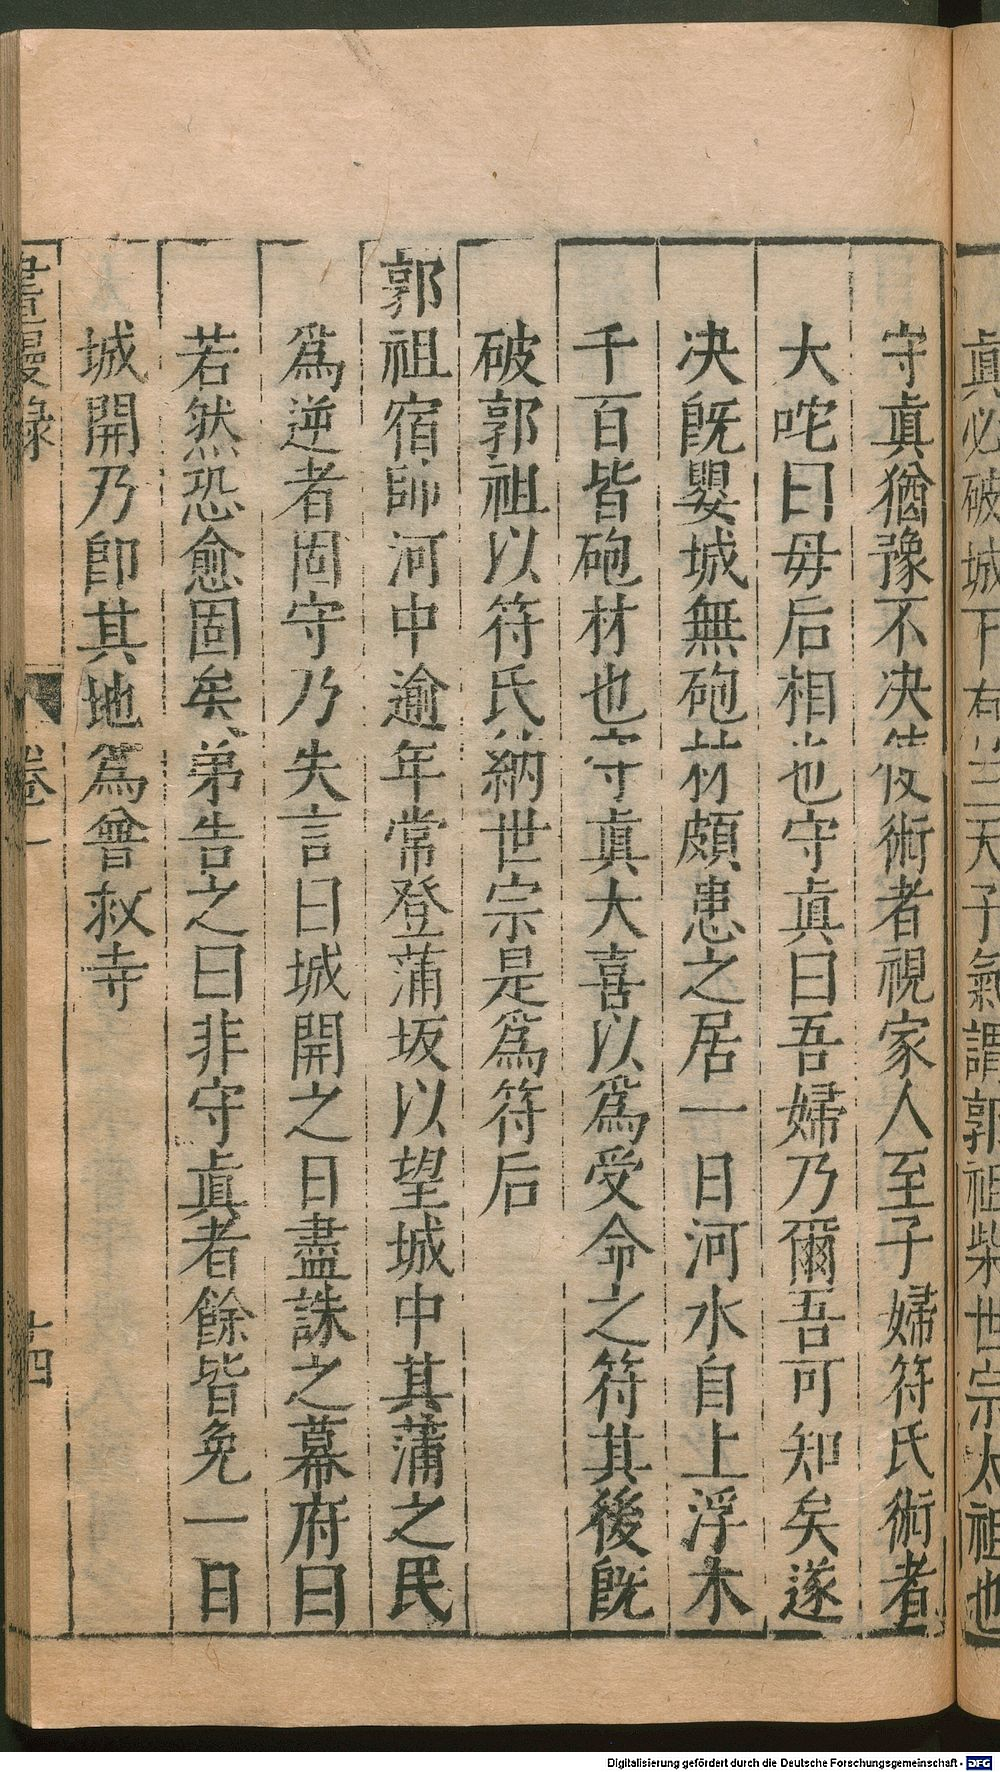 眞必破城下有三天子氣謂郭祖柴世宗太祖也
守眞猶豫不決使術者視家人至子婦符氏術者
大咤曰毋后相也守眞曰吾婦乃爾吾可知矣遂
決旣嬰城無砲材頗患之居一日河水自上浮木
千百皆砲材也守眞大喜以爲受命之符其後旣
破郭祖以符氏納世宗是爲符后
郭祖宿師河中逾年常登蒲坂以望城中其蒲之民
爲逆者固守乃失言曰城開之日盡誅之幕府曰
若然恐愈固矣弟告之曰非守眞者餘皆免一日
城開乃卽其地爲曾救寺
畫墁錄 卷一 十四
Digitalisierung gefördert durch die Deutsche Forschungsgemeinschaft - DFG